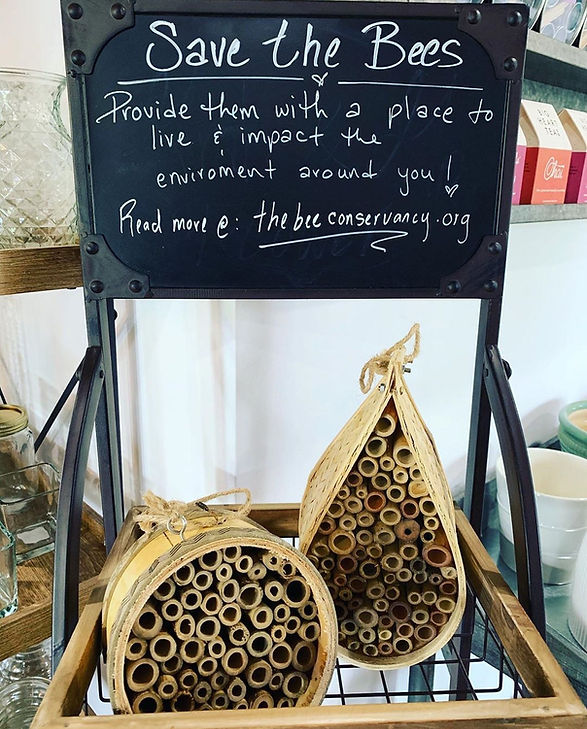 Save the Bees
Provide them with a place to
live & impact the
enviroment around you!
Read more @: thebeeconservancy.org
BIG
HEART
TEA CO
Chai